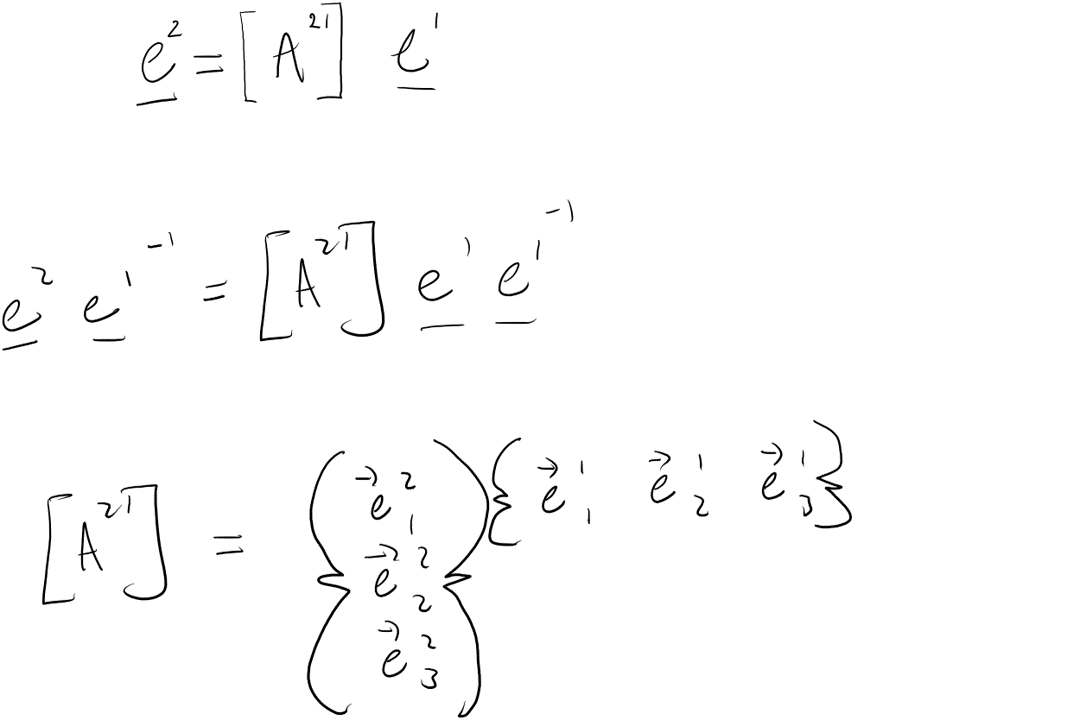 e² = [A²¹] e¹
e² e¹⁻¹ = [A²¹] e¹ e¹⁻¹
[A²¹] = {e⃗²₁ e⃗²₂ e⃗²₃} {e⃗¹₁ e⃗¹₂ e⃗¹₃}